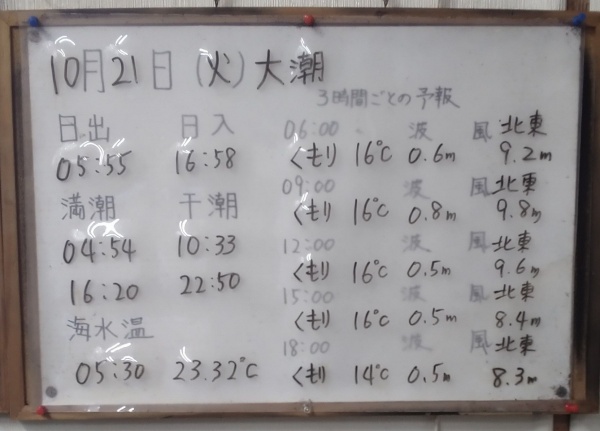 10月21日(火)大潮
3時間ごとの予報
日出 日入
05:55 16:58
満潮 干潮
04:54 10:33
16:20 22:50
海水温
05:30 23.32℃
06:00 波 風 北東
くもり 16℃ 0.6m 9.2m
09:00 波 風 北東
くもり 16℃ 0.8m 9.8m
12:00 波 風 北東
くもり 16℃ 0.5m 9.6m
15:00 波 風 北東
くもり 16℃ 0.5m 8.4m
18:00 波 風 北東
くもり 14℃ 0.5m 8.3m